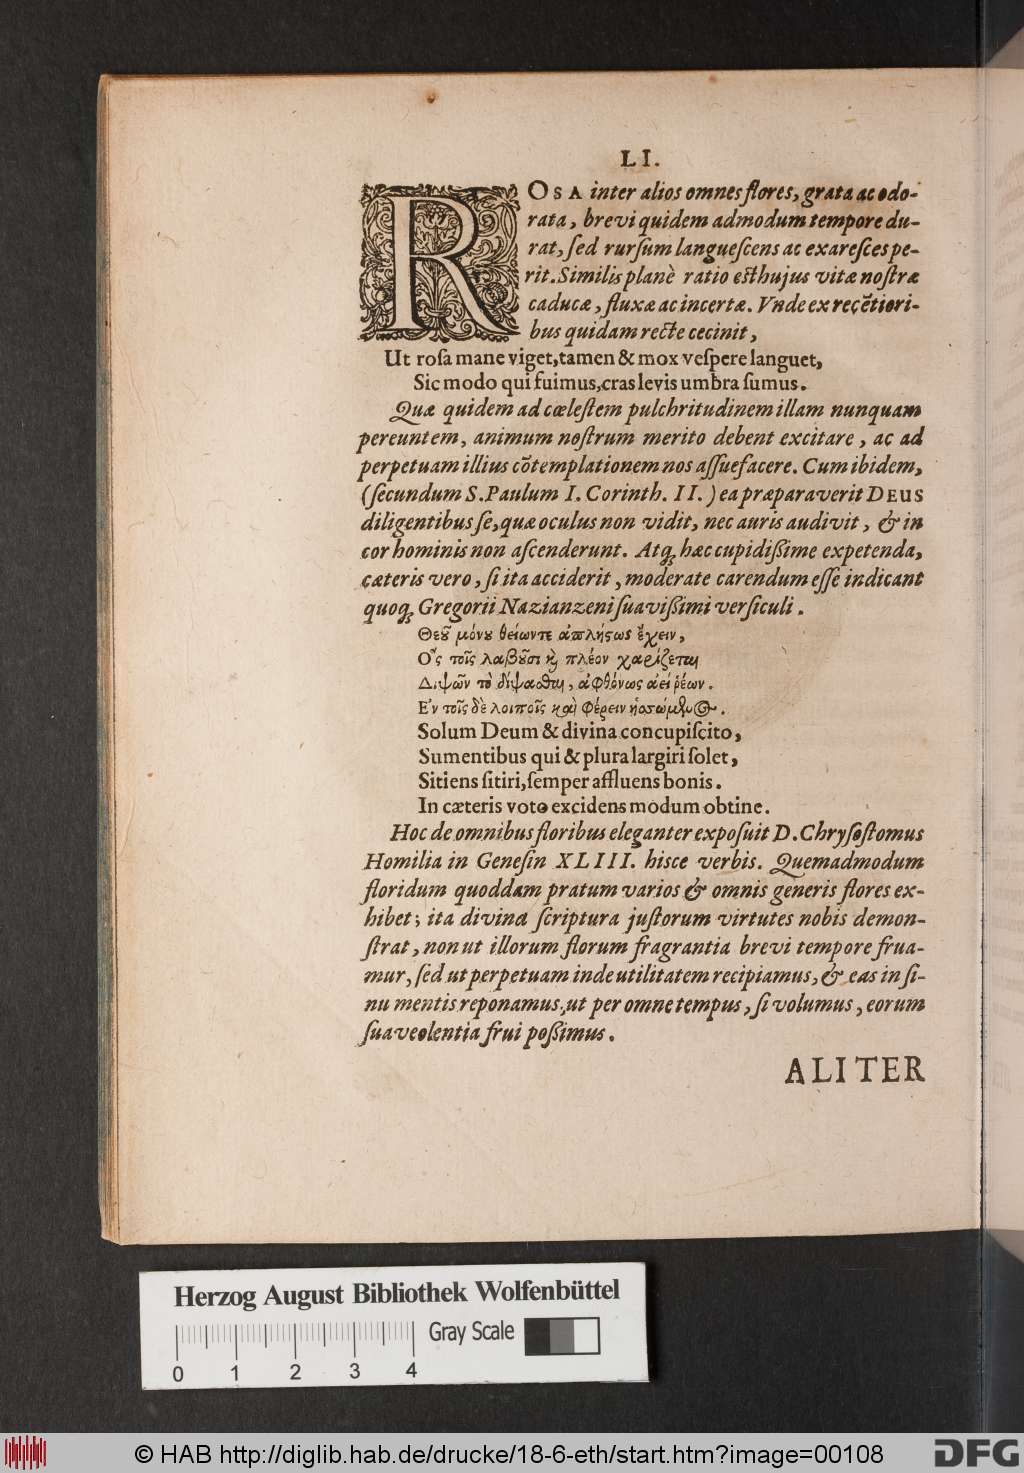 LI.
ROSA inter alios omnes flores, grata ac odo-
rata, brevi quidem admodum tempore du-
rat, ſed rurſum langueſcens ac exareſces pe-
rit. Similis planè ratio eſt hujus vitæ noſtræ
caducæ, fluxæ ac incertæ. Vnde ex recẽtiori-
bus quidam recte cecinit,
Ut roſa mane viget, tamen & mox veſpere languet,
Sic modo qui fuimus, cras levis umbra ſumus.
Quæ quidem ad cœleſtem pulchritudinem illam nunquam
pereuntem, animum noſtrum merito debent excitare, ac ad
perpetuam illius cõtemplationem nos aſſuefacere. Cum ibidem,
(ſecundum S. Paulum I. Corinth. II.) ea præparaverit DEUS
diligentibus ſe, quæ oculus non vidit, nec auris audivit, & in
cor hominis non aſcenderunt. Atq; hæc cupidiſſime expetenda,
cæteris vero, ſi ita acciderit, moderate carendum eſſe indicant
quoq; Gregorii Nazianzeni ſuaviſſimi verſiculi.
Θεοῦ μόνου θείων τε ἀπλήστως ἔχειν,
Ὃς τοῖς λαβοῦσι καὶ πλέον χαρίζεται
Διψῶν τὸ διψᾶσθαι, ἀφθόνως ἀεὶ ῥέων.
Ἐν τοῖς δὲ λοιποῖς καὶ φέρειν
Solum Deum & divina concupiſcito,
Sumentibus qui & plura largiri ſolet,
Sitiens ſitiri, ſemper affluens bonis.
In cæteris voto excidens modum obtine.
Hoc de omnibus floribus eleganter expoſuit D. Chryſoſtomus
Homilia in Geneſin XLIII. hisce verbis. Quemadmodum
floridum quoddam pratum varios & omnis generis flores ex-
hibet; ita divina ſcriptura juſtorum virtutes nobis demon-
ſtrat, non ut illorum florum fragrantia brevi tempore frua-
mur, ſed ut perpetuam inde utilitatem recipiamus, & eas in ſi-
nu mentis reponamus, ut per omne tempus, ſi volumus, eorum
ſuaveolentia frui poſſimus.
ALITER
Herzog August Bibliothek Wolfenbüttel
Gray Scale
0 1 2 3 4
© HAB http://diglib.hab.de/drucke/18-6-eth/start.htm?image=00108
DFG